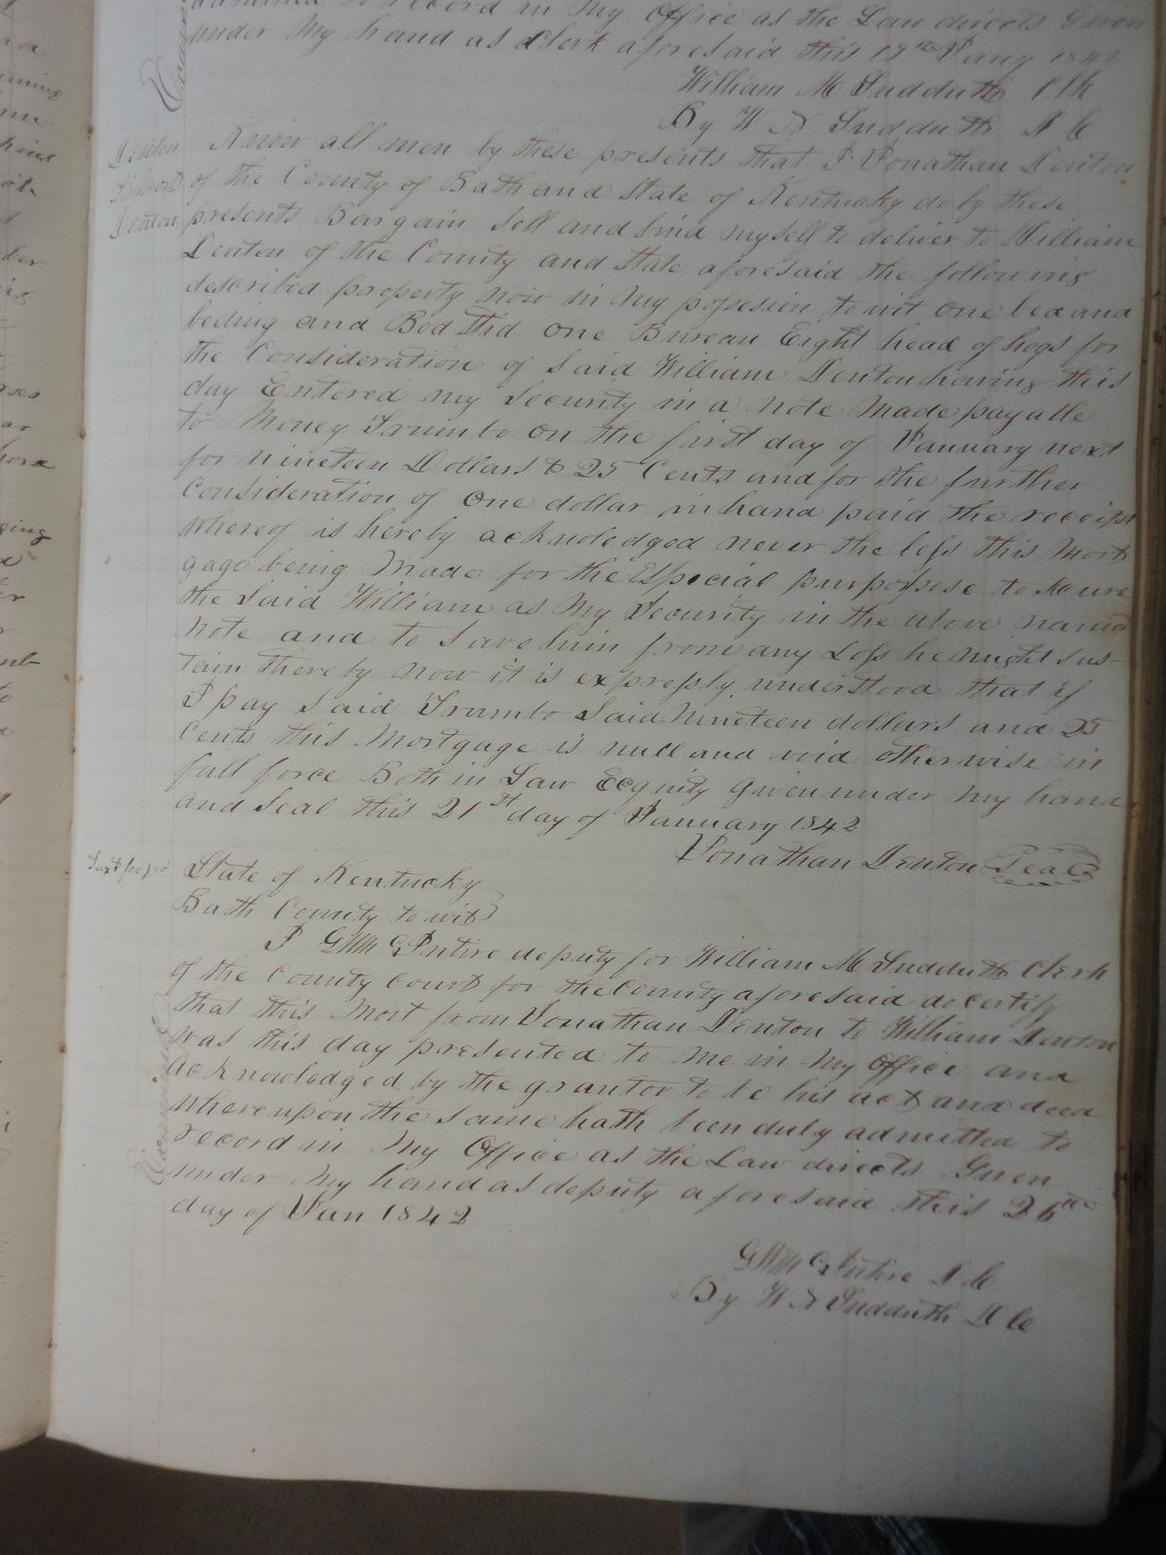 admitted to record in my Office as the Law directs Given
under my hand as Clerk aforesaid this 19th Jany 1842
William M Sudduth Clk
By W N Sudduth D C
Denton
Mort
Denton
Know all men by these presents that I Jonathan Denton
of the County of Bath and State of Kentucky do by these
presents Bargain Sell and bind myself to deliver to William
Denton of the County and State aforesaid the following
described property now in my possesion to wit one bed and
beding and Bed Stid one Bureau Eight head of hogs for
the Consideration of Said William Denton having this
day Entered my Security in a note made payable
to Money Trumbo on the first day of January next
for nineteen Dollars & 25 Cents and for the further
Consideration of One dollar in hand paid the receipt
whereof is hereby acknowledged never the less this Mort
gage being Made for the Especial purpose to Secure
the Said William as my Security in the above named
note and to save him from any Loss he might sus-
tain thereby now it is expressly understood that if
I pay Said Trumbo Said Nineteen dollars and 25
Cents this Mortgage is null and void otherwise in
full force Both in Law Ecquity given under my hand
and Seal this 21st day of January 1842
Jonathan Denton Seal
State of Kentucky
Bath County to wit
I GWM Intire deputy for William M Sudduth Clerk
of the County Court for the County aforesaid do certify
that this Mort from Jonathan Denton to William Denton
was this day presented to me in my Office and
acknowledged by the grantor to be his act and deed
whereupon the same hath been duly admitted to
record in my Office as the Law directs Given
under my hand as deputy aforesaid this 26th
day of Jan 1842
GWMc Intire D C
By W N Sudduth D C